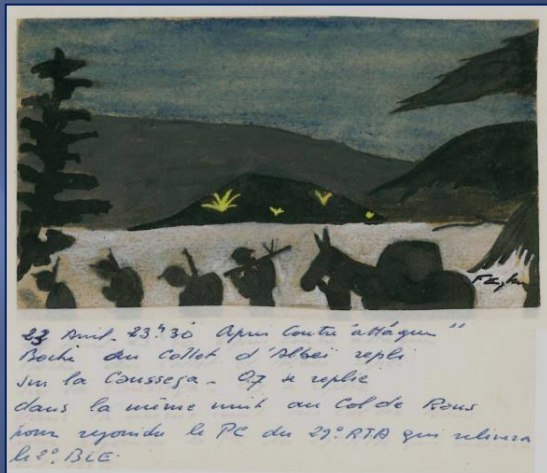 23 Avril. 23h30 Après Contre'attaque"
Boche du Collet d'Albeï repli
sur la Coussega - O7 se replie
dans la même nuit au Col de Raus
pour rejoindre le PC du 29° RTA qui relivera
le 2° BLE.